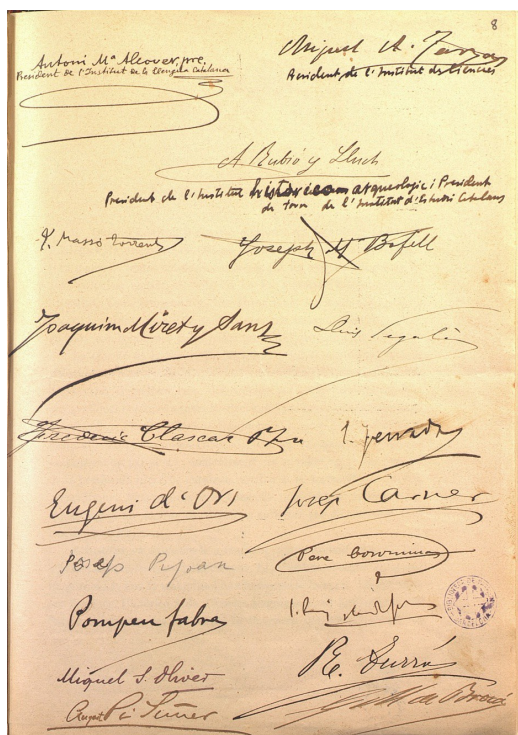 8
Antoni Mª Alcover, pre,
President de l'Institut de la Llengua Catalana
Miquel A.
President de l'Institut de Ciencies
A Rubió y Lluch
President de l'Institut historicom arqueologic i President
de torn de l'Institut d'Estudis Catalans
J. Massó Torrents
Joseph Mª Bofill
Joaquim Miret y Sans
Lluis Segalá
Frederic Clascar
Eugeni d'Ors
Josep Carner
Josep Pijoan
Pere Coromines
Pompeu fabra
Miquel S. Oliver
August Pi Suñer